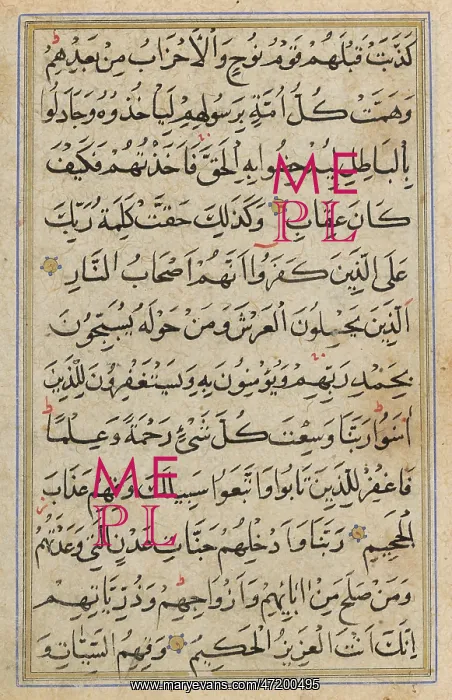 كَذَّبَتْ قَبْلَهُمْ قَوْمُ نُوحٍ وَالْأَحْزَابُ مِنْ بَعْدِهِمْ
وَهَمَّتْ كُلُّ أُمَّةٍ بِرَسُولِهِمْ لِيَأْخُذُوهُ وَجَادَلُوا
بِالْبَاطِلِ لِيُدْحِضُوا بِهِ الْحَقَّ فَأَخَذْتُهُمْ فَكَيْفَ
كَانَ عِقَابِ وَكَذَلِكَ حَقَّتْ كَلِمَةُ رَبِّكَ
عَلَى الَّذِينَ كَفَرُوا أَنَّهُمْ أَصْحَابُ النَّارِ
الَّذِينَ يَحْمِلُونَ الْعَرْشَ وَمَنْ حَوْلَهُ يُسَبِّحُونَ
بِحَمْدِ رَبِّهِمْ وَيُؤْمِنُونَ بِهِ وَيَسْتَغْفِرُونَ لِلَّذِينَ
آمَنُوا رَبَّنَا وَسِعْتَ كُلَّ شَيْءٍ رَحْمَةً وَعِلْمًا
فَاغْفِرْ لِلَّذِينَ تَابُوا وَاتَّبَعُوا سَبِيلَكَ وَقِهِمْ عَذَابَ
الْجَحِيمِ رَبَّنَا وَأَدْخِلْهُمْ جَنَّاتِ عَدْنٍ الَّتِي وَعَدْتَهُمْ
وَمَنْ صَلَحَ مِنْ آبَائِهِمْ وَأَزْوَاجِهِمْ وَذُرِّيَّاتِهِمْ
إِنَّكَ أَنْتَ الْعَزِيزُ الْحَكِيمُ وَقِهِمُ السَّيِّئَاتِ وَ
ME
PL
ME
PL
www.maryevans.com/47200495